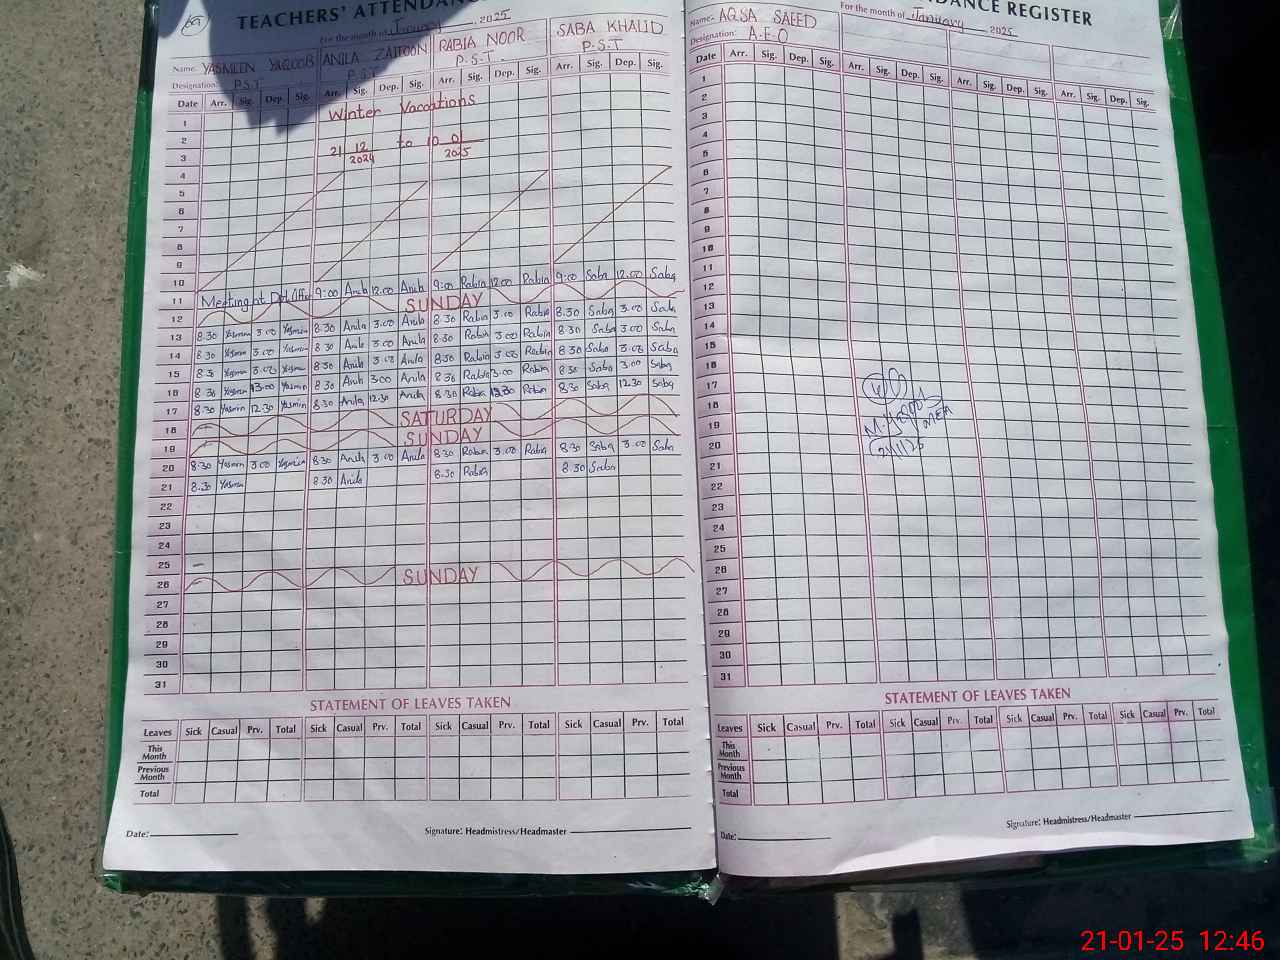 TEACHERS' ATTENDA
For the month of January 2025
Name: YASMEEN YAQOOB ANILA ZAITOON RABIA NOOR SABA KHALID
Designation: P.S.T P.S.T P.S.T. P.S.T
Date Arr. Sig. Dep. Sig. Arr. Sig. Dep. Sig. Arr. Sig. Dep. Sig. Arr. Sig. Dep. Sig.
1 Winter Vacations
2
3 21 12 2024 to 10 01 2025
4
5
6
7
8
9
10
11 Meeting at 9:00 Anila 12.00 Anila 9:00 Rabia 12.00 Rabia 9:00 Saba 12.00 Saba
12 SUNDAY
13 8.30 Yasmin 3.00 Yasmin 8.30 Anila 3.00 Anila 8.30 Rabia 3.00 Rabia 8.30 Saba 3.00 Saba
14 8.30 Yasmin 3.00 Yasmin 8.30 Anila 3.00 Anila 8.30 Rabia 3.00 Rabia 8.30 Saba 3.00 Saba
15 8.30 Yasmin 3.00 Yasmin 8.30 Anila 3.00 Anila 8.30 Rabia 3.00 Rabia 8.30 Saba 3.00 Saba
16 8.30 Yasmin 3.00 Yasmin 8.30 Anila 3.00 Anila 8.30 Rabia 3.00 Rabia 8.30 Saba 3.00 Saba
17 8.30 Yasmin 12.30 Yasmin 8.30 Anila 12.30 Anila 8.30 Rabia 12.30 Rabia 8.30 Saba 12.30 Saba
18 SATURDAY
19 SUNDAY
20 8.30 Yasmin 3.00 Yasmin 8.30 Anila 3.00 Anila 8.30 Rabia 3.00 Rabia 8.30 Saba 3.00 Saba
21 8.30 Yasmin 8.30 Anila 8.30 Rabia 8.30 Saba
22
23
24
25
26 SUNDAY
27
28
29
30
31
STATEMENT OF LEAVES TAKEN
Leaves Sick Casual Prv. Total Sick Casual Prv. Total Sick Casual Prv. Total Sick Casual Prv. Total
This Month
Previous Month
Total
Date:
Signature: Headmistress/Headmaster
DANCE REGISTER
For the month of January 2025
Name:- AQSA SAEED
Designation: A.E.O
Date Arr. Sig. Dep. Sig. Arr. Sig. Dep. Sig. Arr. Sig. Dep. Sig. Arr. Sig. Dep. Sig.
1
2
3
4
5
6
7
8
9
10
11
12
13
14
15
16
17
18
19 MEA
20
21
22
23
24
25
26
27
28
29
30
31
STATEMENT OF LEAVES TAKEN
Leaves Sick Casual Prv. Total Sick Casual Prv. Total Sick Casual Prv. Total Sick Casual Prv. Total
This Month
Previous Month
Total
Date:
Signature: Headmistress/Headmaster
21-01-25 12:46